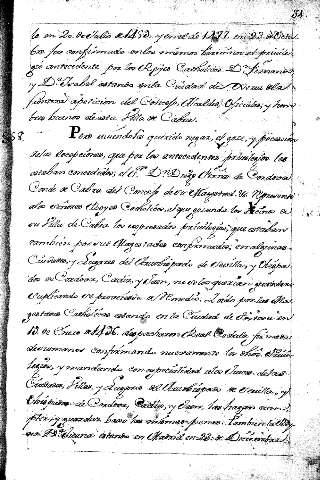 34.
lo en 20. de Julio de 1452. y en el de 1477. en 23. de Octu
bre fue confirmado en los mismos terminos el privile
gio antecedente por los Reyes Catholicos Dn. Fernando, y
Da. Isabel estando en la Ciudad de
frontera a peticion del Concejo, Alcaldes, Oficiales, y hom
bres buenos de esta Villa de Cabra.
58. Pero viendo la quieta y el goce, y posesion
de las exempciones, que por los antecedentes privilegios les
estaban concedidas, el Sr. Dn. Diego Fernz. de Cordova
Conde de Cabra del Consejo de Sus Magestades
a los Señores Reyes Catholicos, el que gozando los Vecinos de
su Villa de Cabra los expresados privilegios, que estaban
tambien por sus Magestades confirmados, en algunas
Ciudades, y Lugares del Arzobispado de Sevilla, y Obispa
dos de Cordova, Cadiz, y Jaen, no se los querian guardar
suplicando se proveyese de remedio. Y assi por las Ma
gestades Catholicas estando en la Ciudad de
13. de Enero de 1486. despacharon Real Cedula firmada de
sus manos confirmando nuevamente los dhos. Privi
legios, y mandando con especialidad a los Jueces de las
Ciudades, Villas, y Lugares del Arzobispado de Sevilla, y
Obispados de Cordova, Cadiz, y Jaen, las hagan cum
plir, y guardar bajo las mismas penas. Tambien la Rey
na Da. Juana estando en Madrid en 23. de Diciembre